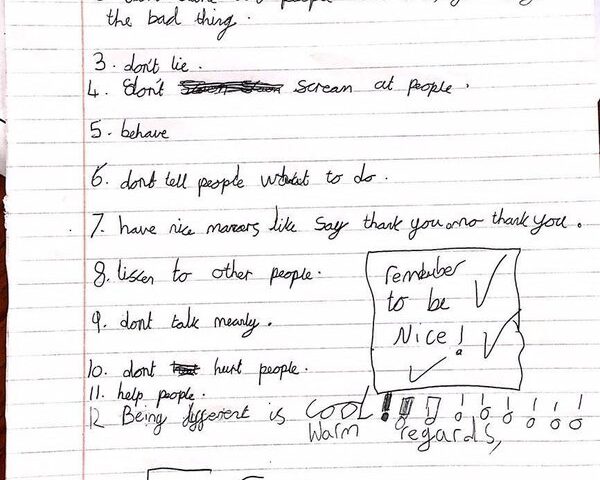 people
the bad thing.
3. don't lie.
4. don't screan at people.
5. behave
6. dont tell people what to do.
7. have nice manars like say thank you or no thank you.
8. liscen to other people.
9. dont talk meanly.
10. dont hurt people.
11. help people.
12 Being different is COOL!!!!!!!!!!
Warm regards,
remember
to be
Nice!